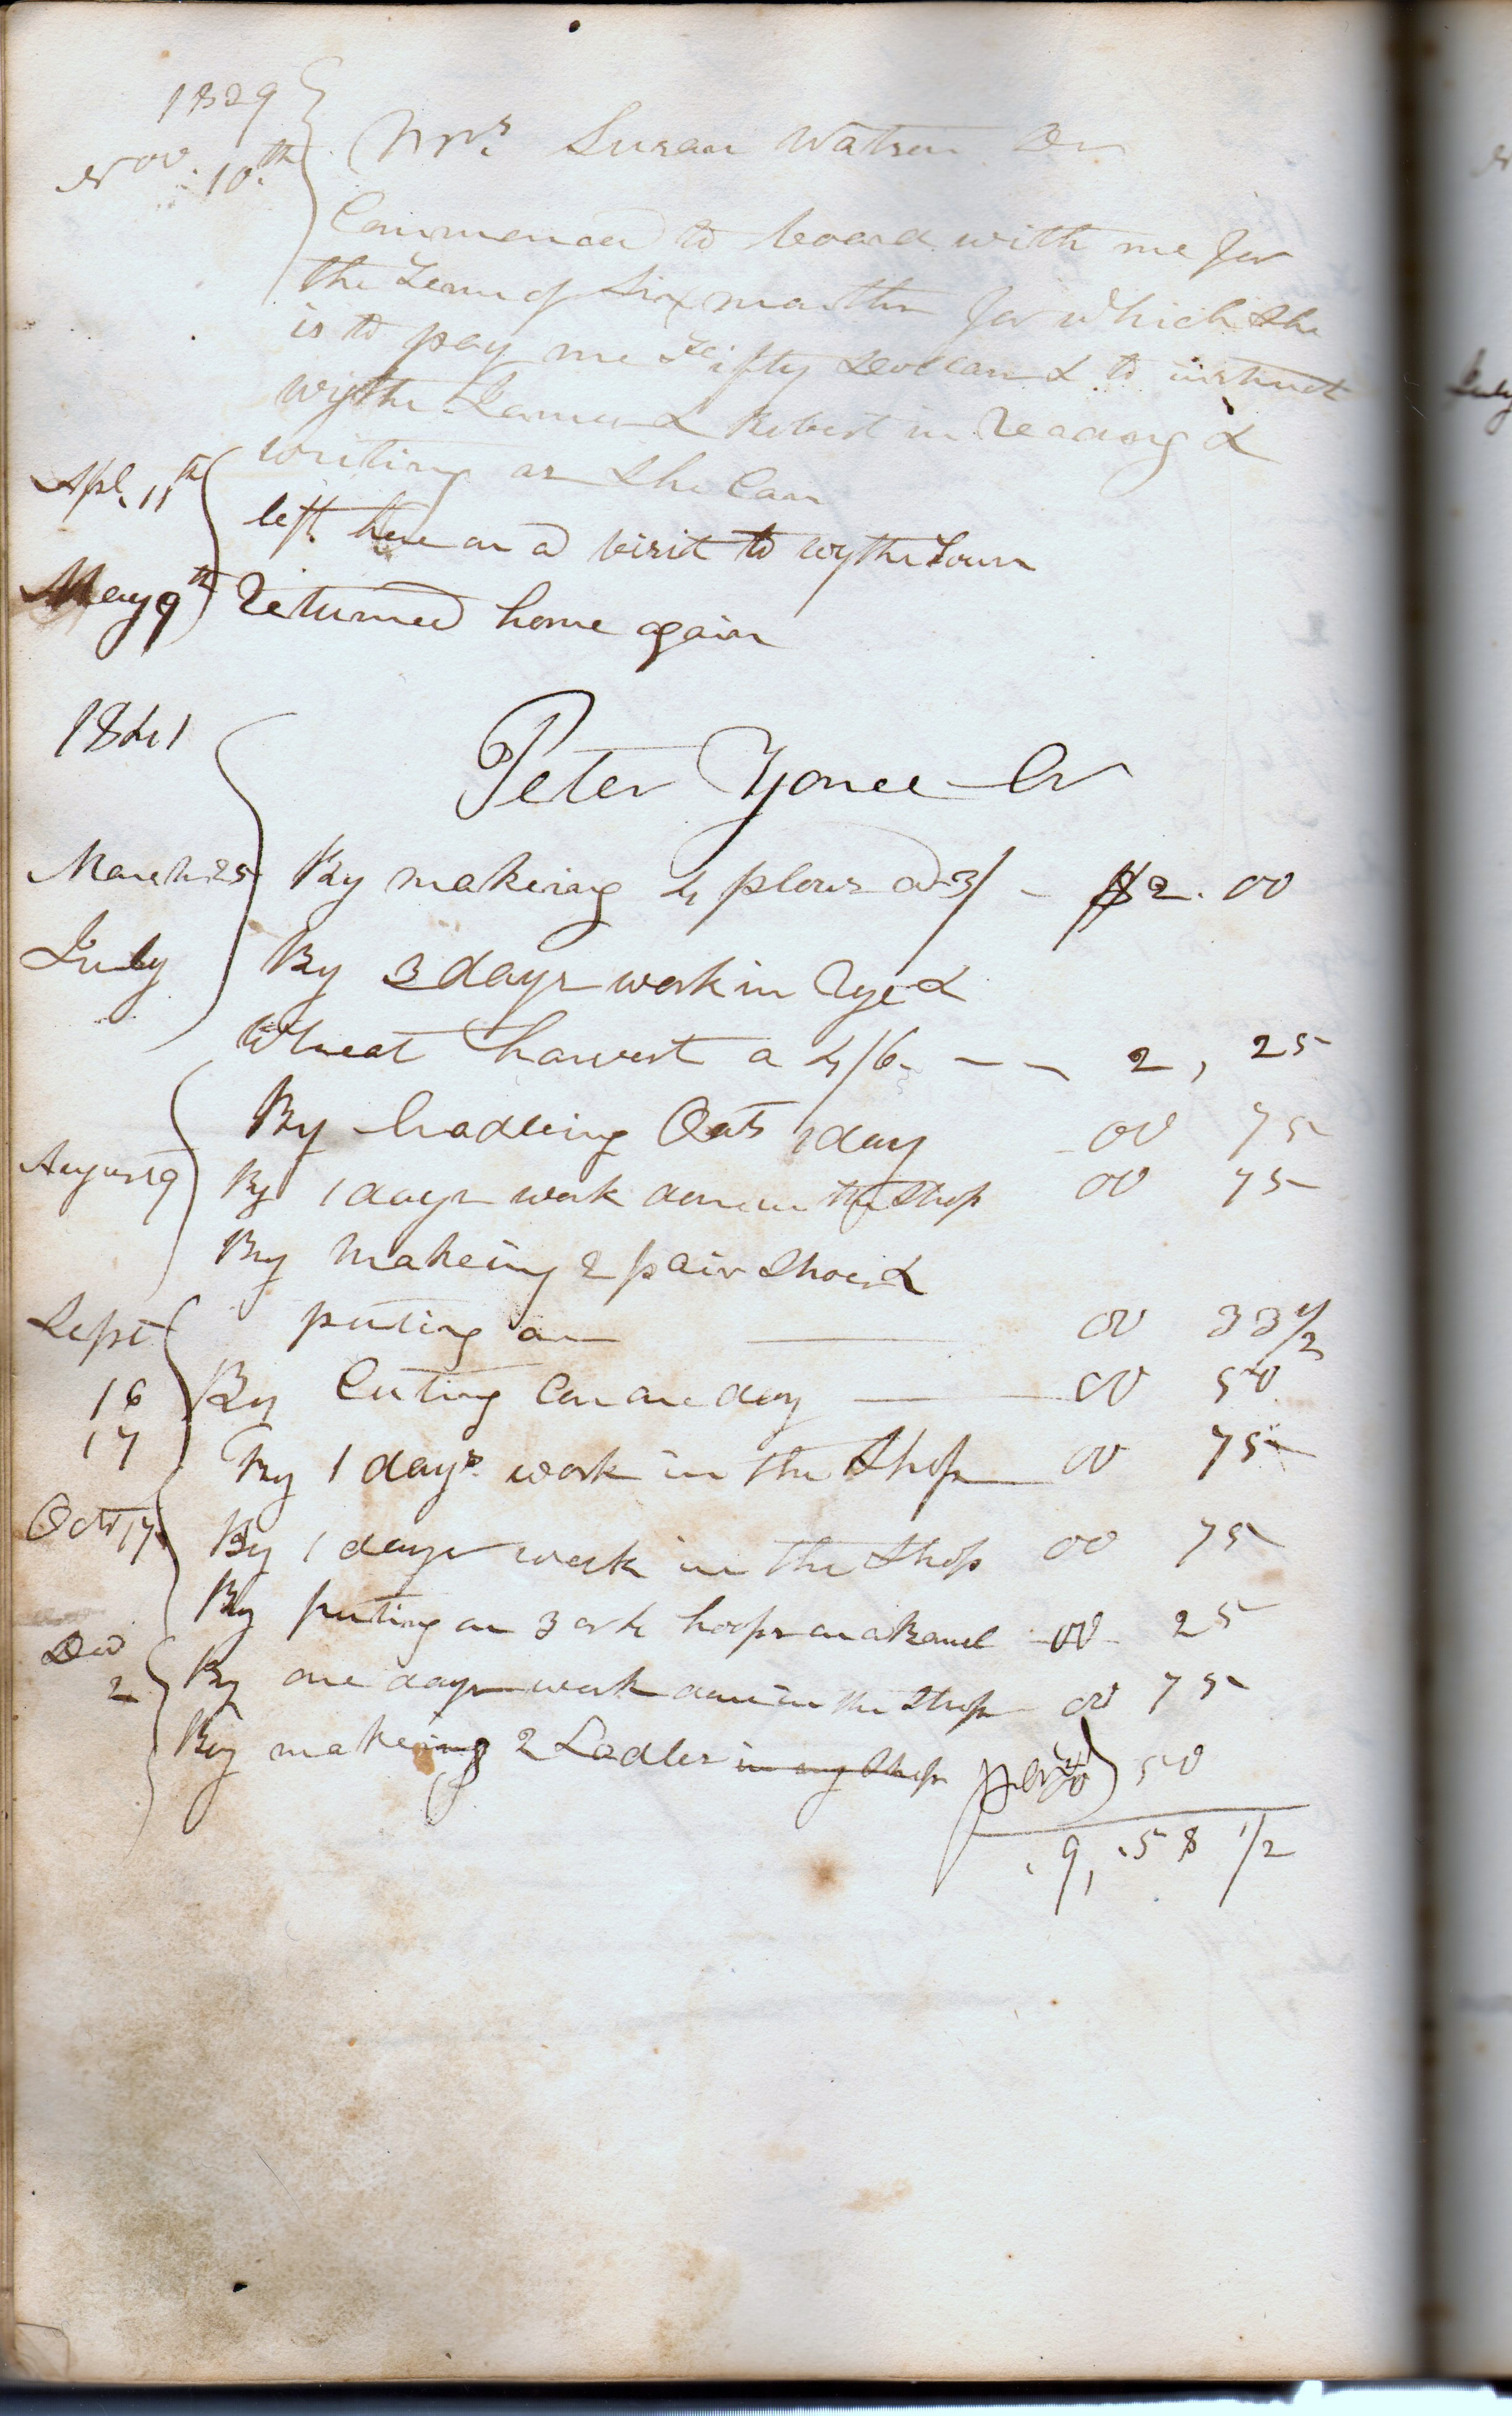 1829
Nov. 10th Mrs. Susan Watson Dr
Commenced to board with me for
the Term of Six months for which She
is to pay me Fifty Dollars & to instruct
Wythe James & Robert in reading &
writing as She Can
Apl. 11th left here on a visit to Wythe Town
May 9th returned home again
1841
Peter Yonce Cr
March 25 By makeing 4 plows a 3/ - $2.00
July By 3 days work in Rye &
Wheat harvest a 4/6 - - 2, 25
By Cradleing Oats 1 day 00 75
August 9 By 1 days work done in the Shop 00 75
By makeing 2 pair Shoes &
Sept puting on 00 33 1/2
16 By Cuting Corn one day 00 50
17 By 1 days work in the Shop 00 75
Octr 17 By 1 days work in the Shop 00 75
By puting on 3 ork hoops on a Barrel 00 25
Dec
2 By one days work done in the Shop 00 75
By makeing 2 Ladles in my Shop 50
9, 58 1/2
July